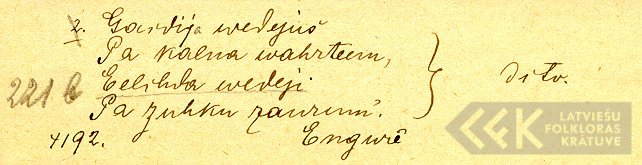 2. Gaidija wedejus
Pa kalna wahrteem,
221 b Eelihda wedeji
Pa zuhku zaurumu. } dito.
4192. Engurē
LATVIEŠU
FOLKLORAS
KRĀTUVE